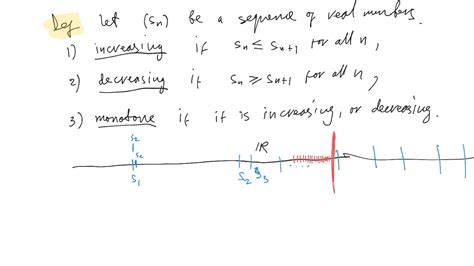 Def Let (Sn) be a sequence of real numbers.
1) increasing if Sn ≤ Sn+1 for all n,
2) decreasing if Sn ≥ Sn+1 for all n,
3) monotone if it is increasing, or decreasing.
S2
IR
S1 S2 S3 ....